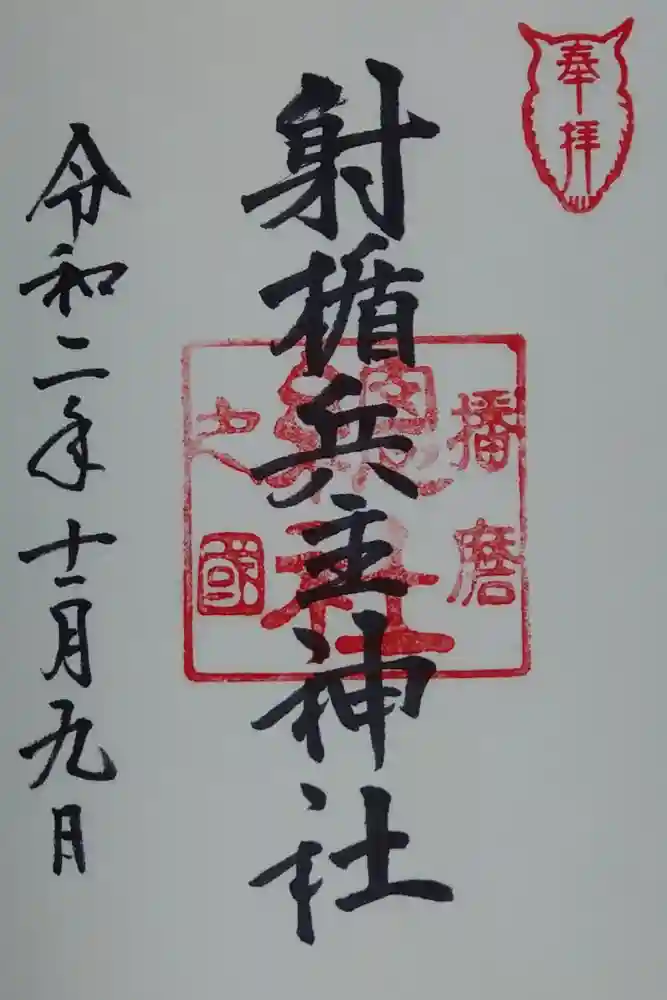 奉拝
播磨
總社
國
射楯兵主神社
令和二年十一月九日